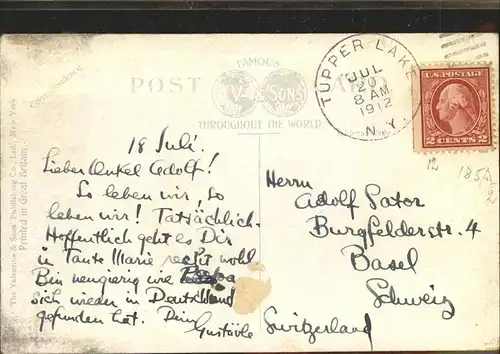 FAMOUS
POST CARD
V & SONS
THROUGHOUT THE WORLD.
TUPPER LAKE
JUL
20
8 AM
1912
N.Y.
U.S. POSTAGE
2 CENTS 2
The Valentine & Sons Publishing Co., Ltd., New York
Printed in Great Britain.
18 Juli.
Lieber Onkel Adolf!
So leben wir, so
leben wir! Tatsächlich.
Hoffentlich geht es Dir
u Tante Marie recht wohl
Bin neugierig wie
sich wieder in Deutschland
gefunden hat. Dein
Gustävle
Herrn
Adolf Pator
Burgfelderstr. 4
Basel
Schweiz
Switzerland